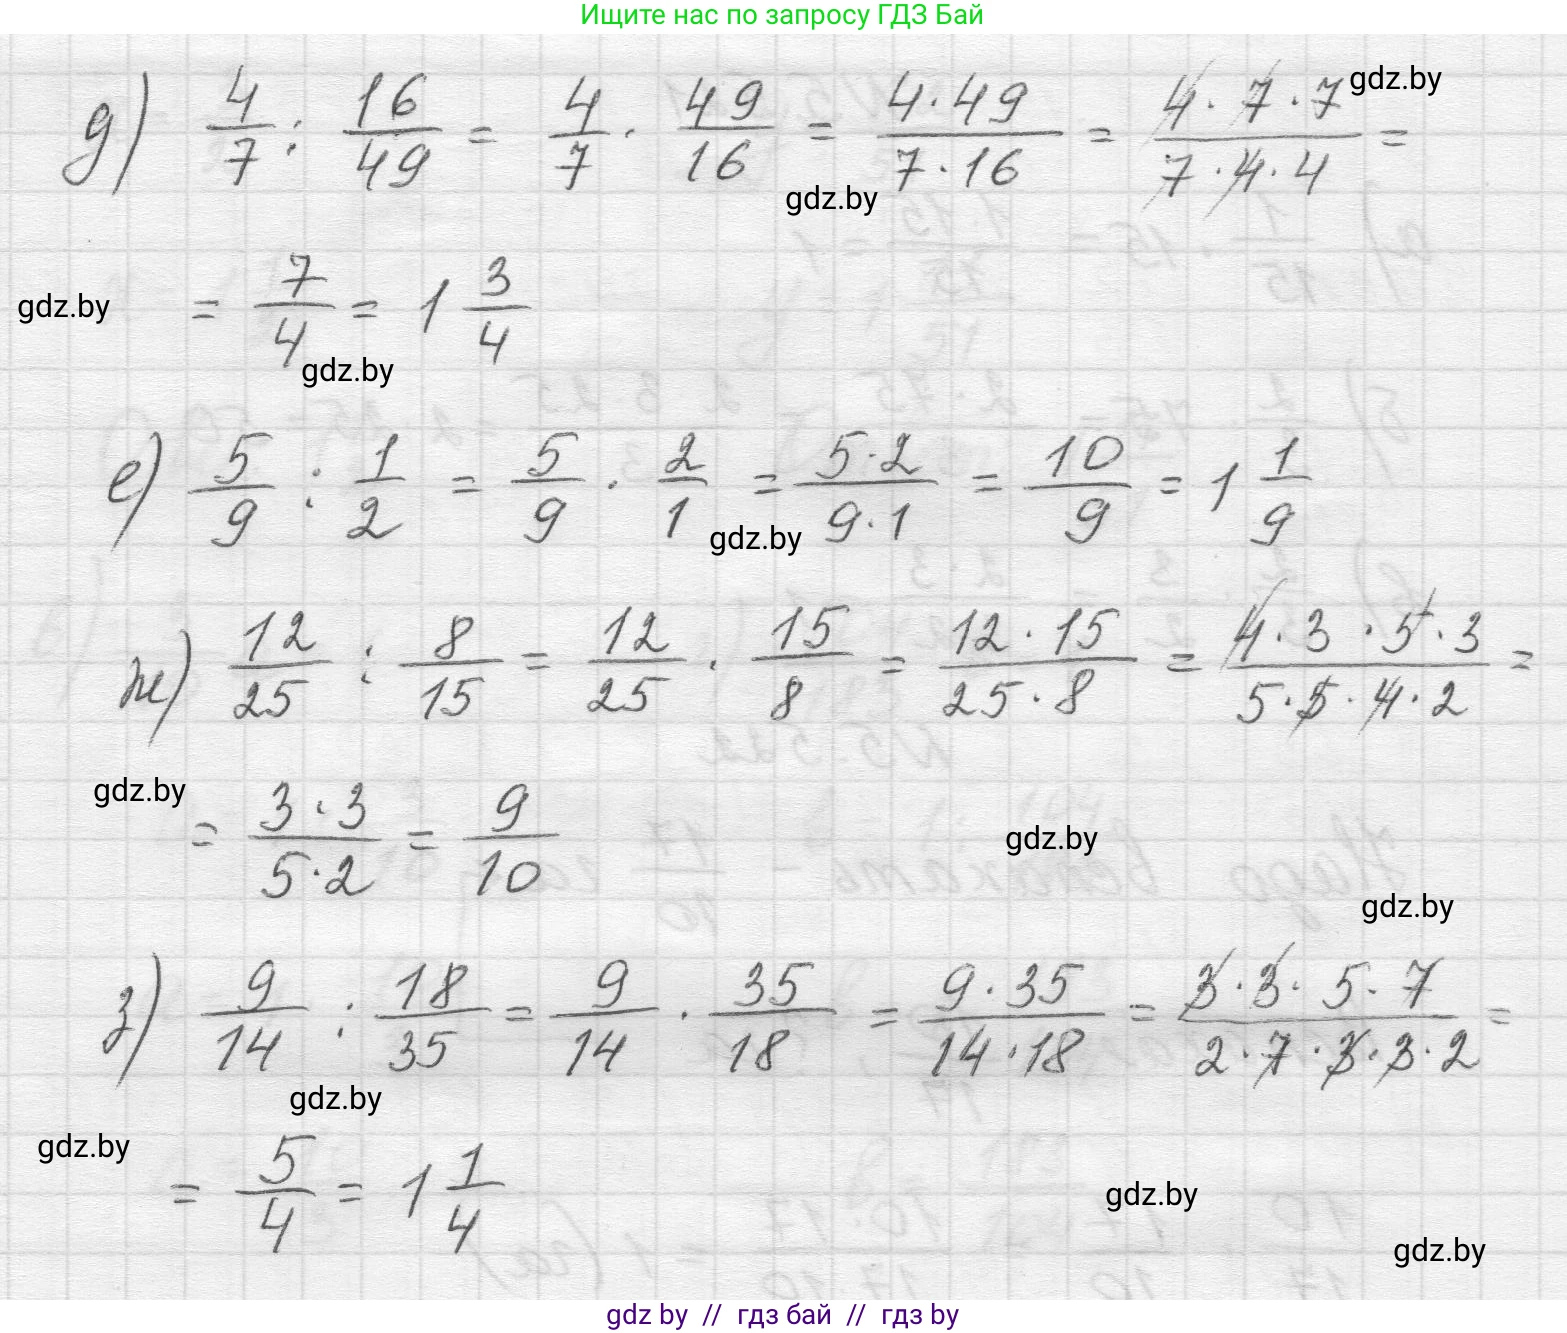 Ищите нас по запросу ГДЗ Бай
д) 4/7 : 16/49 = 4/7 · 49/16 = 4·49/7·16 = 4·7·7/7·4·4 =
gdz.by
gdz.by
= 7/4 = 1 3/4
gdz.by
gdz.by
е) 5/9 : 1/2 = 5/9 · 2/1 = 5·2/9·1 = 10/9 = 1 1/9
gdz.by
ж) 12/25 : 8/15 = 12/25 · 15/8 = 12·15/25·8 = 4·3·5·3/5·5·4·2 =
gdz.by
= 3·3/5·2 = 9/10
gdz.by
gdz.by
з) 9/14 : 18/35 = 9/14 · 35/18 = 9·35/14·18 = 3·3·5·7/2·7·3·3·2 =
gdz.by
gdz.by
= 5/4 = 1 1/4
gdz.by
gdz.by
gdz by // гдз бай // гдз by